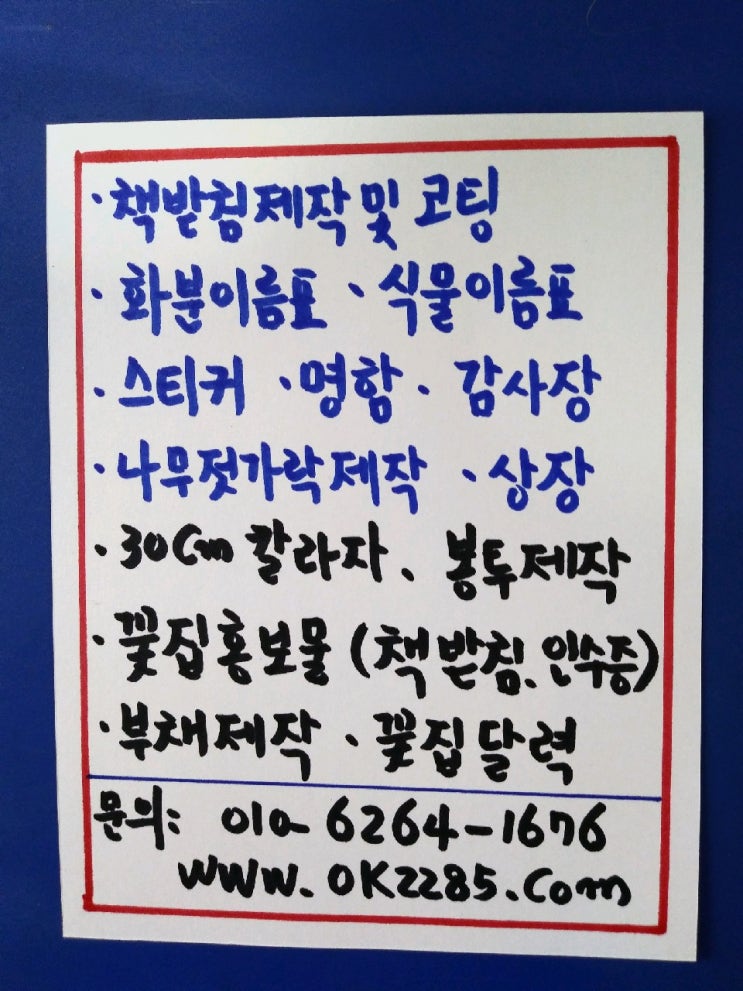 · 책받침제작 및 코팅
· 화분이름표 · 식물이름표
· 스티커 · 명함 · 감사장
· 나무젓가락제작 · 상장
· 30Cm 칼라자 · 봉투제작
· 꽃집홍보물 (책받침, 인수증)
· 부채제작 · 꽃집달력
문의: 010-6264-1676
www.OK2285.Com